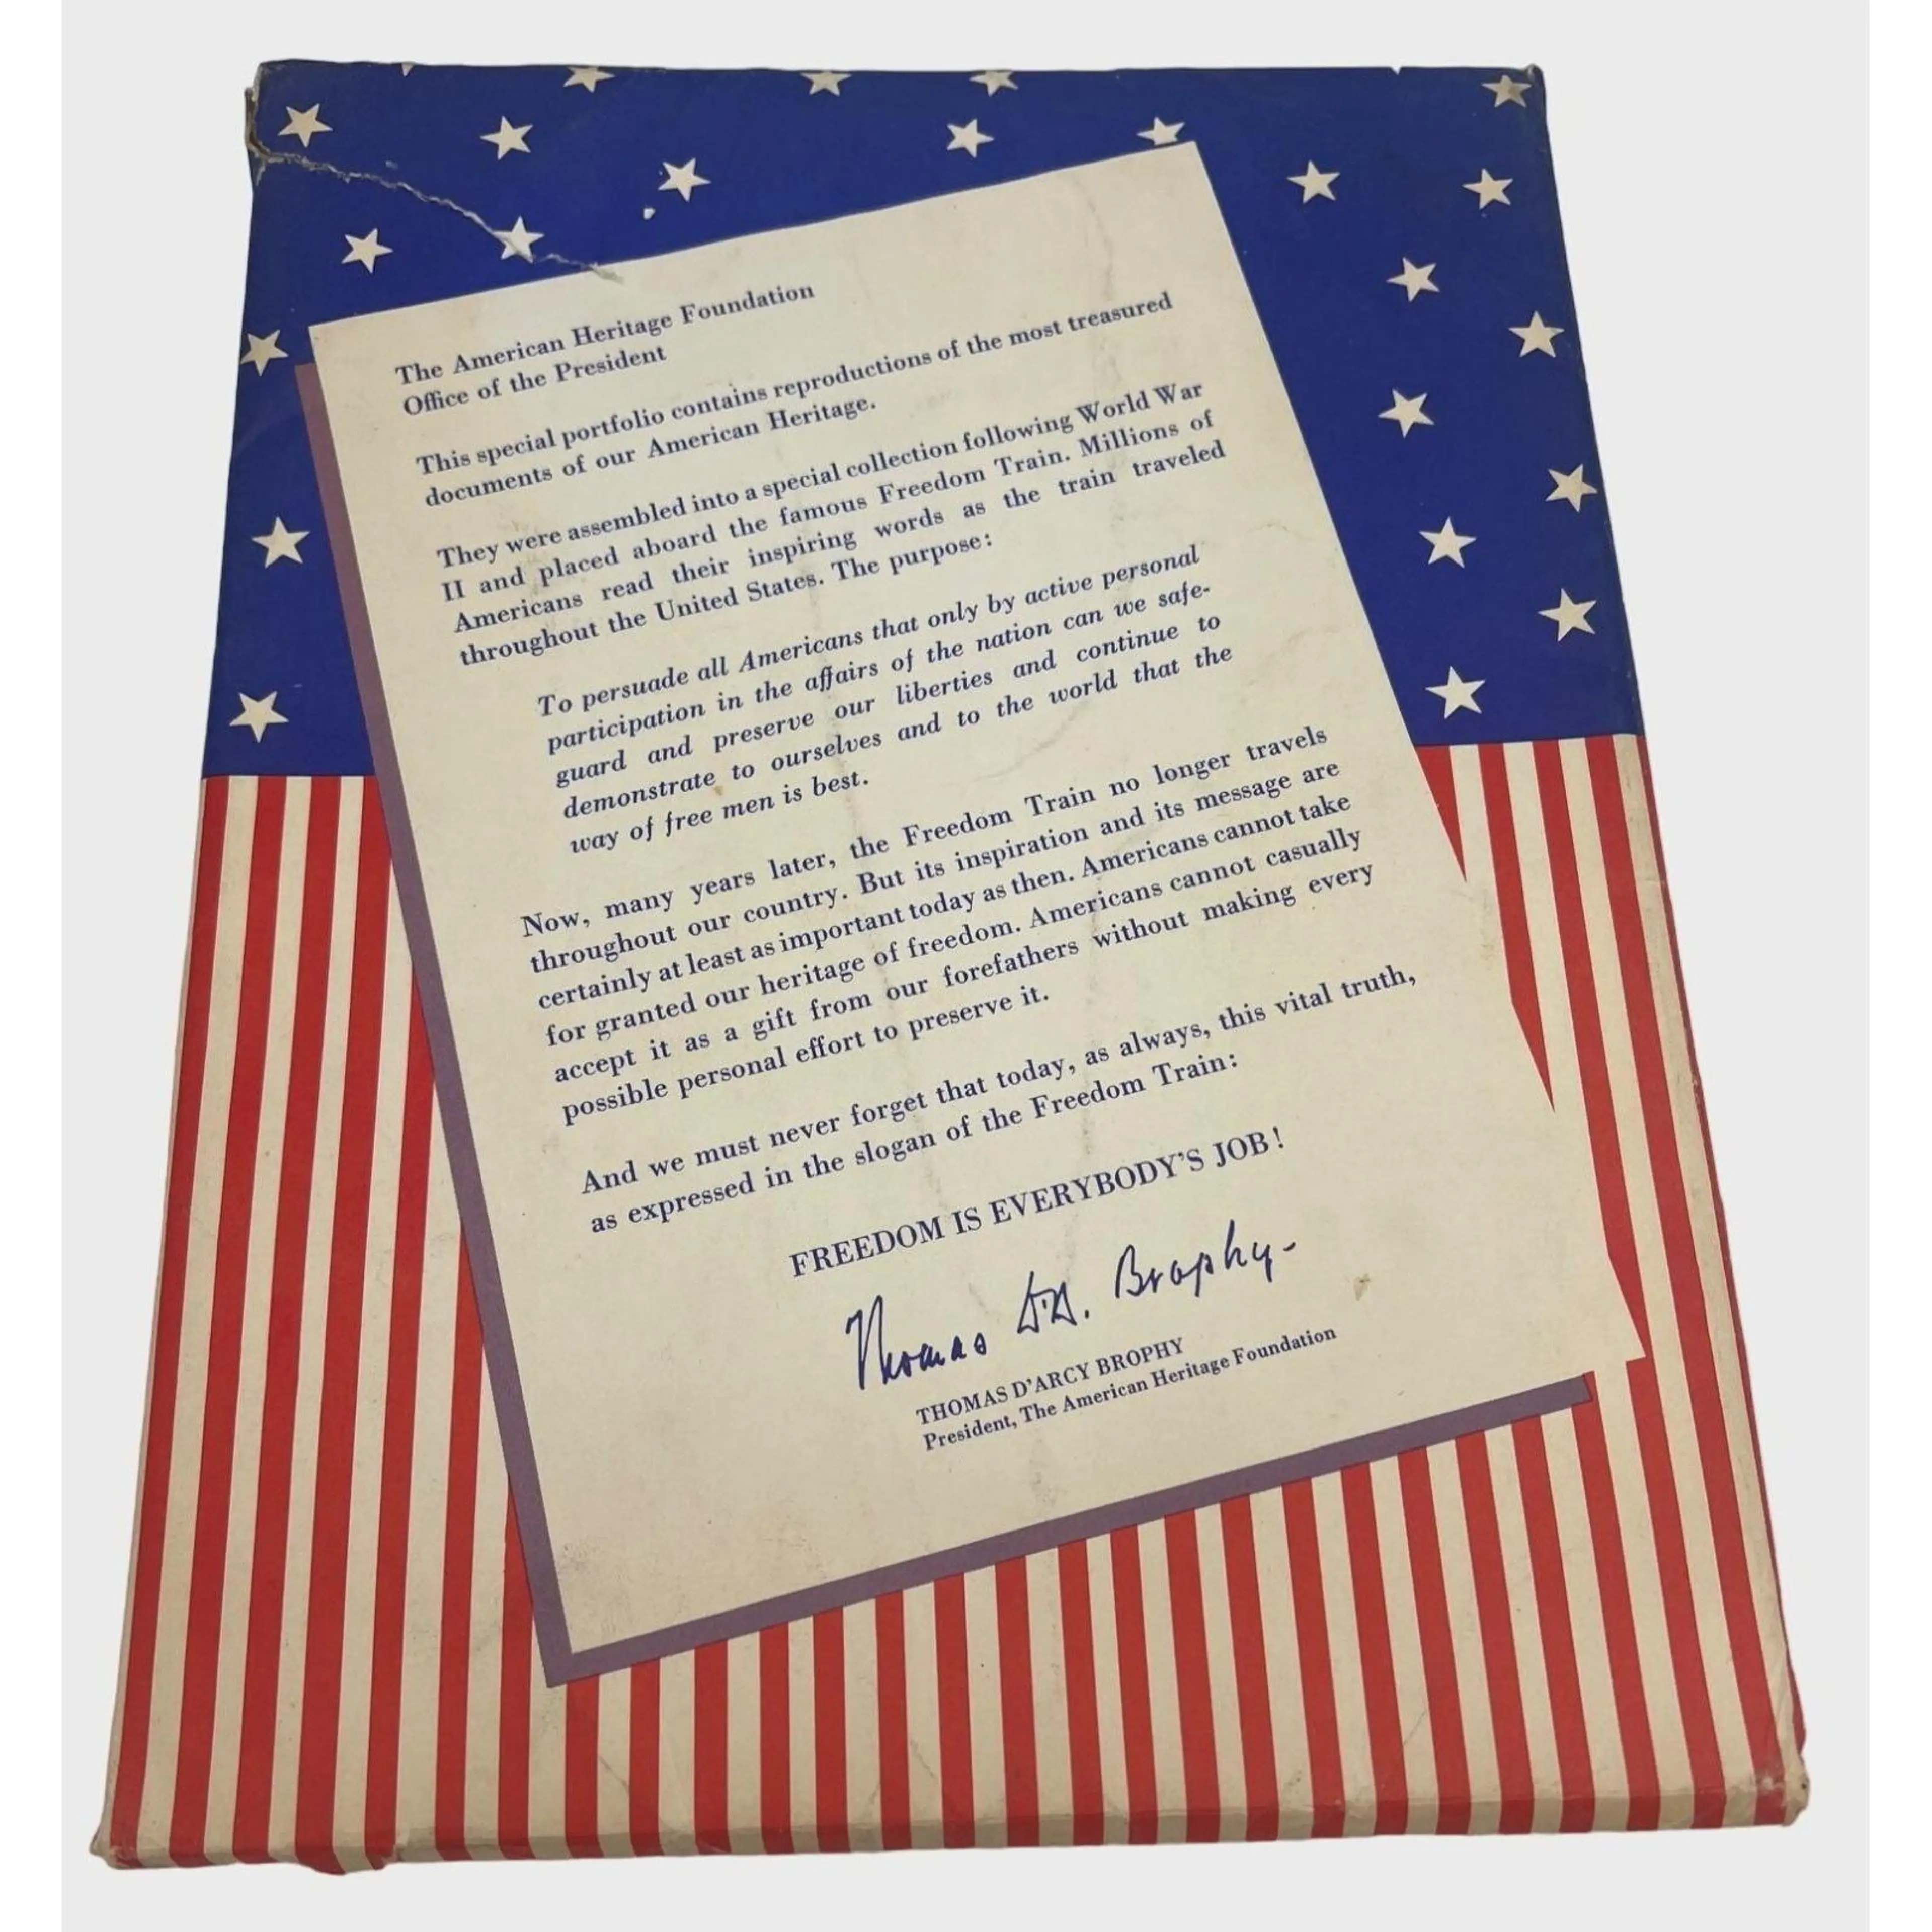 The American Heritage Foundation
Office of the President
This special portfolio contains reproductions of the most treasured
documents of our American Heritage.
They were assembled into a special collection following World War
II and placed aboard the famous Freedom Train. Millions of
Americans read their inspiring words as the train traveled
throughout the United States. The purpose:
To persuade all Americans that only by active personal
participation in the affairs of the nation can we safe-
guard and preserve our liberties and continue to
demonstrate to ourselves and to the world that the
way of free men is best.
Now, many years later, the Freedom Train no longer travels
throughout our country. But its inspiration and its message are
certainly at least as important today as then. Americans cannot take
for granted our heritage of freedom. Americans cannot casually
accept it as a gift from our forefathers without making every
possible personal effort to preserve it.
And we must never forget that today, as always, this vital truth,
as expressed in the slogan of the Freedom Train:
FREEDOM IS EVERYBODY'S JOB!
Thomas D'A. Brophy-
THOMAS D'ARCY BROPHY
President, The American Heritage Foundation